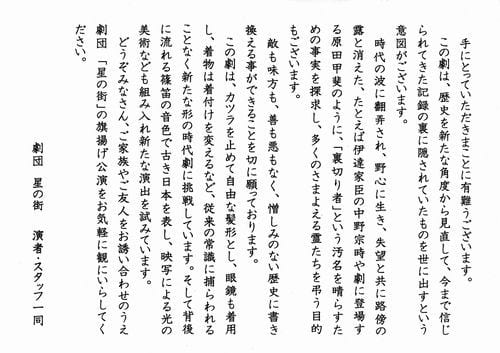 手にとっていただきまことに有難うございます。
この劇は、歴史を新たな角度から見直して、今まで信じ
られてきた記録の裏に隠されていたものを世に出すという
意図がございます。
時代の波に翻弄され、野心に生き、失望と共に路傍の
露と消えた、たとえば伊達家臣の中野宗時や劇に登場す
る原田甲斐のように、「裏切り者」という汚名を晴らすた
めの事実を探求し、多くのさまよえる霊たちを弔う目的
もございます。
敵も味方も、善も悪もなく、憎しみのない歴史に書き
換える事ができることを切に願っております。
この劇は、カツラを止めて自由な髪形とし、眼鏡も着用
し、着物は着付けを変えるなど、従来の常識に捕らわれる
ことなく新たな形の時代劇に挑戦しています。そして背後
に流れる篠笛の音色で古き日本を表し、映写による光の
美術なども組み入れ新たな演出を試みています。
どうぞみなさん、ご家族やご友人をお誘い合わせのうえ
劇団「星の街」の旗揚げ公演をお気軽に観にいらしてく
ださい。
劇団 星の街 演者・スタッフ一同